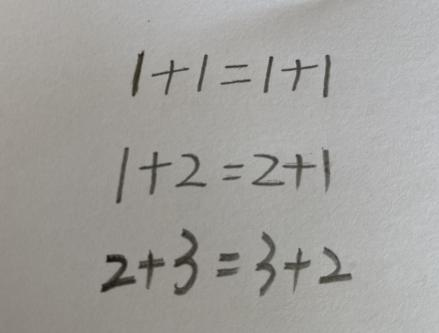 1+1=1+1
1+2=2+1
2+3=3+2